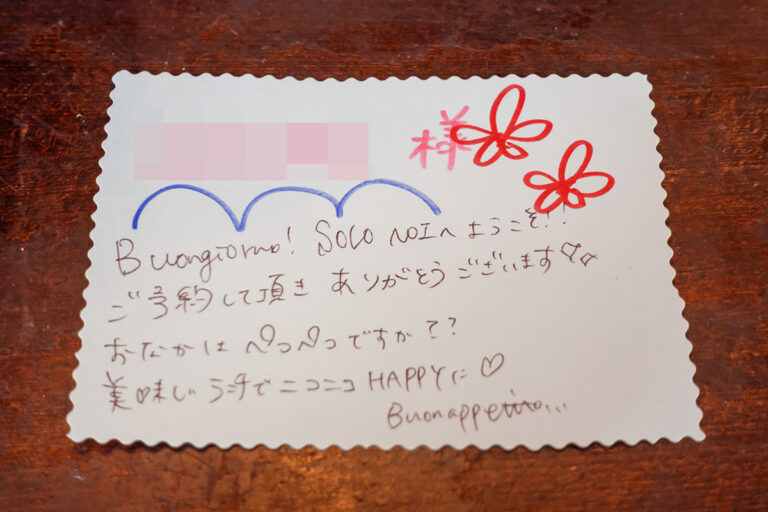 様
Buongiorno! SOLO NOIへ ようこそ!!
ご予約して頂き ありがとうございます♡♡
おなかは ペコペコですかて??
美味しいランチで ニコニコ HAPPYに♡
Buonappetito...